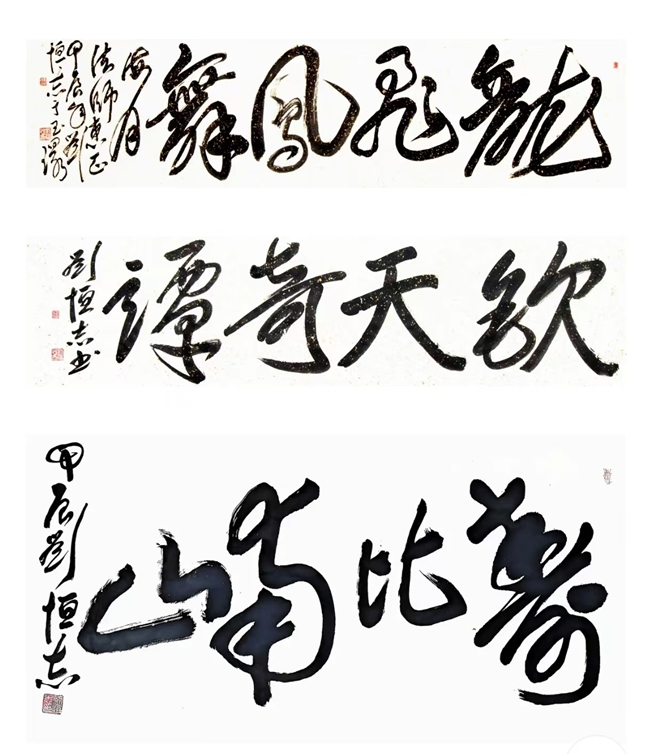 龍飛鳳舞
海月
法師惠正
甲辰秋劉
恒志于玉
欽天奇譚
劉恒志书
壽比南山
甲辰劉恒志